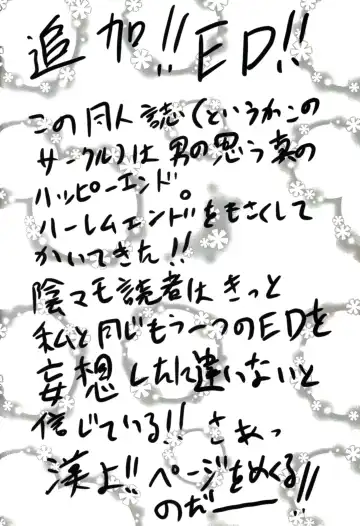 追加!!ED!!
この同人誌(というかこの
サークル)は男の思う真の
ハッピーエンド。
ハーレムエンドをもさくして
かいてきた!!
陰マモ読者はきっと
私と同じもう一つのEDを
妄想したに違いないと
信じている!! さぁっ
漢よ!!ページをめくる
のだーー!!